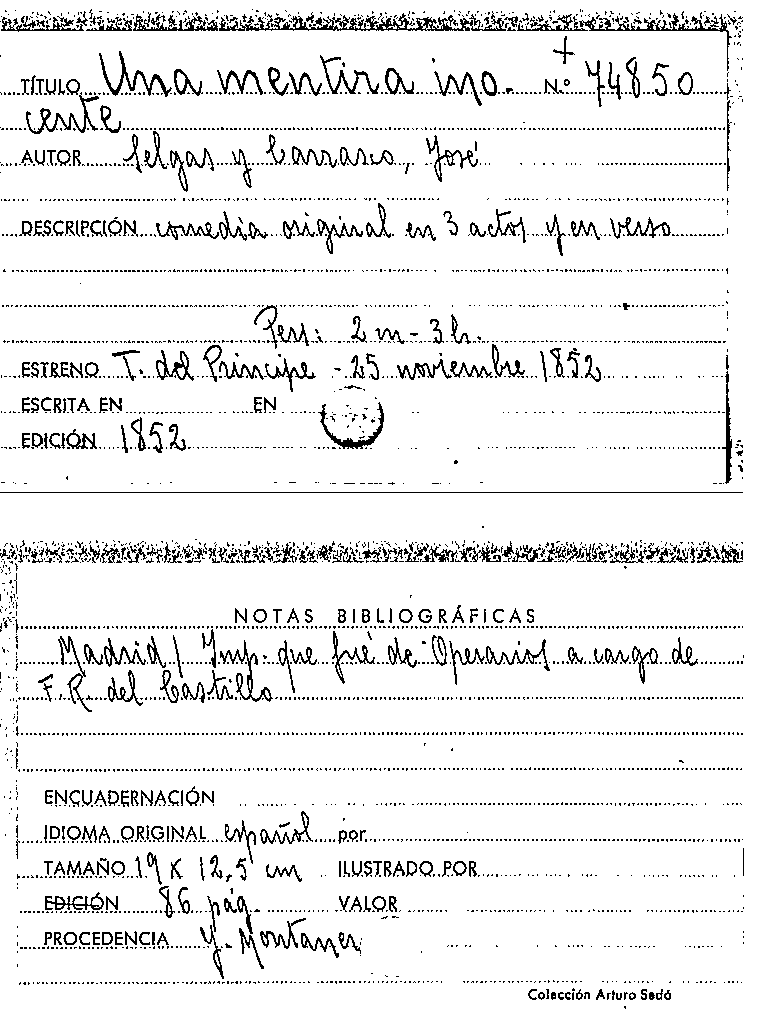 +
TÍTULO Una mentira ino- N.º 74850
cente
AUTOR Selgas y Carrasco, José
DESCRIPCIÓN comedia original en 3 actos y en verso
Pers: 2 m - 3 h.
ESTRENO T. del Príncipe - 25 noviembre 1852
ESCRITA EN EN
EDICIÓN 1852
NOTAS BIBLIOGRÁFICAS
Madrid / Imp. que fué de Operarios a cargo de
F. R. del Castillo
ENCUADERNACIÓN
IDIOMA ORIGINAL español por
TAMAÑO 19 x 12,5 cm ILUSTRADO POR
EDICIÓN 86 pág. VALOR
PROCEDENCIA Y. Montaner
Colección Arturo Sedó